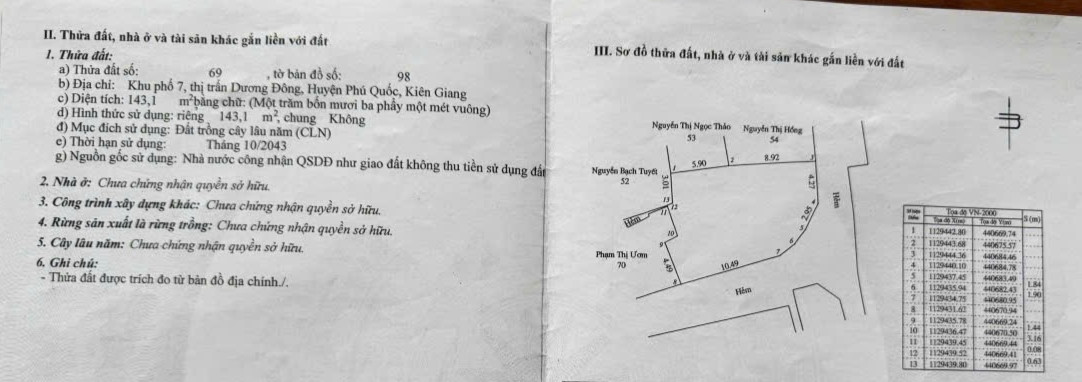 II. Thửa đất, nhà ở và tài sản khác gắn liền với đất
1. Thửa đất:
a) Thửa đất số: 69 , tờ bản đồ số: 98
b) Địa chỉ: Khu phố 7, thị trấn Dương Đông, Huyện Phú Quốc, Kiên Giang
c) Diện tích: 143,1 m² bằng chữ: (Một trăm bốn mươi ba phẩy một mét vuông)
d) Hình thức sử dụng: riêng 143,1 m², chung Không
đ) Mục đích sử dụng: Đất trồng cây lâu năm (CLN)
e) Thời hạn sử dụng: Tháng 10/2043
g) Nguồn gốc sử dụng: Nhà nước công nhận QSDĐ như giao đất không thu tiền sử dụng đất
2. Nhà ở: Chưa chứng nhận quyền sở hữu.
3. Công trình xây dựng khác: Chưa chứng nhận quyền sở hữu.
4. Rừng sản xuất là rừng trồng: Chưa chứng nhận quyền sở hữu.
5. Cây lâu năm: Chưa chứng nhận quyền sở hữu.
6. Ghi chú:
- Thửa đất được trích đo từ bản đồ địa chính./.
III. Sơ đồ thửa đất, nhà ở và tài sản khác gắn liền với đất
Nguyễn Thị Ngọc Thảo
53
Nguyễn Thị Hồng
54
1 5.90 2 8.92 3
Nguyễn Bạch Tuyết
52
3.01
4.27
Hẻm
13
12
11
Hẻm
4
2.95
5
10
6
9
7
Phạm Thị Ươm
70
4.49
10.49
8
Hẻm
Tọa độ VN-2000 S (m)
Tọa độ X(m) Tọa độ Y(m)
1 1129442.80 440669.74
2 1129443.68 440675.57
3 1129444.36 440684.46
4 1129440.10 440684.78
5 1129437.45 440683.49
1.84
6 1129435.94 440682.43
1.90
7 1129434.75 440680.95
8 1129431.62 440670.94
9 1129435.78 440669.24
1.44
10 1129436.47 440670.50
3.16
11 1129439.45 440669.44
0.08
12 1129439.52 440669.41
0.63
13 1129439.80 440669.97